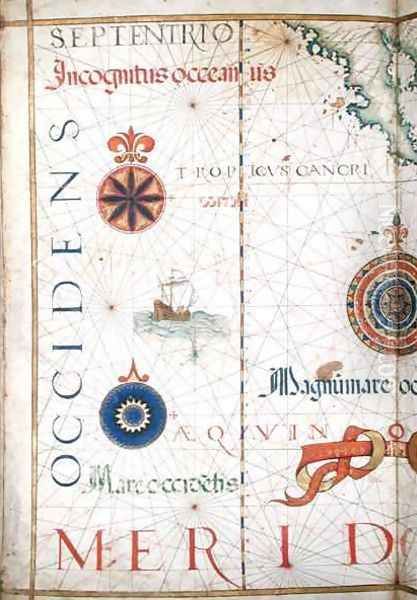 SEPTENTRIO
Incognitus occeanus
OCCIDENS
TROPICVS CANCRI
Magnum are oc
ÆQVIN O
Mare occidẽtis
MERIDO